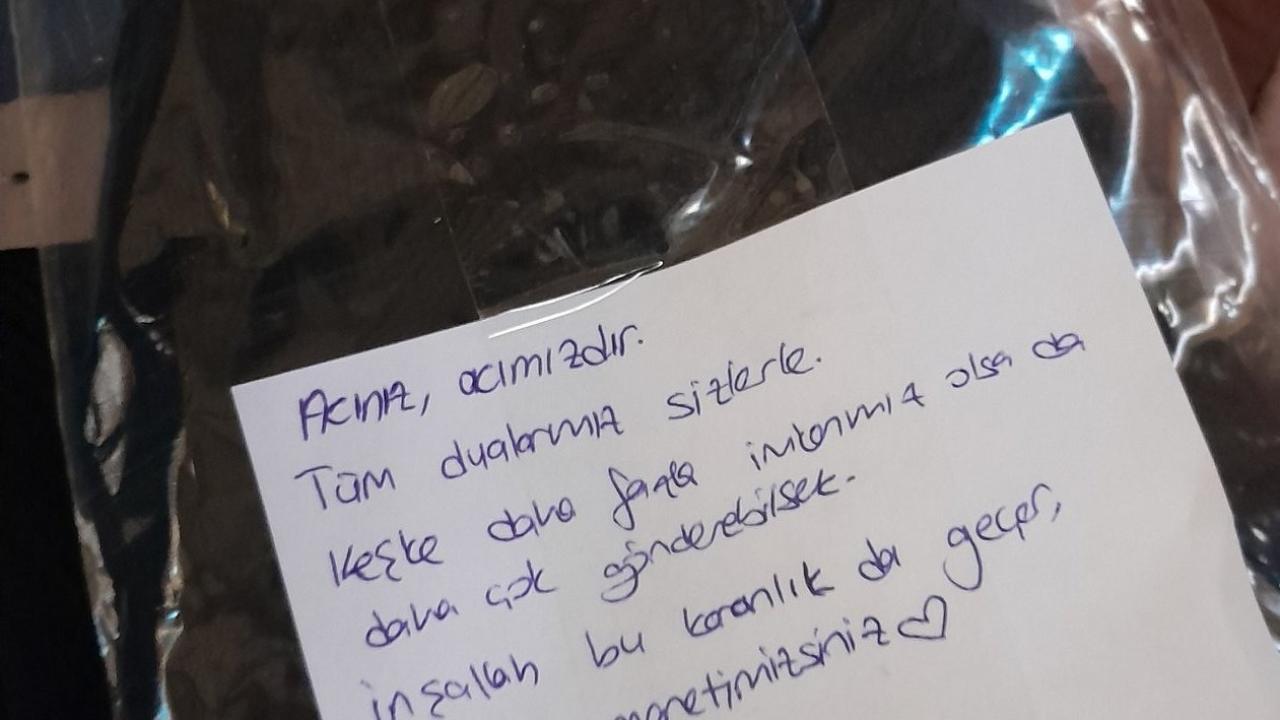 Acınız, acımızdır.
Tüm dualarımız sizlerle.
Keşke daha fazla imkanımız olsa da
daha çok gönderebilsek.
inşallah bu karanlık da geçer,